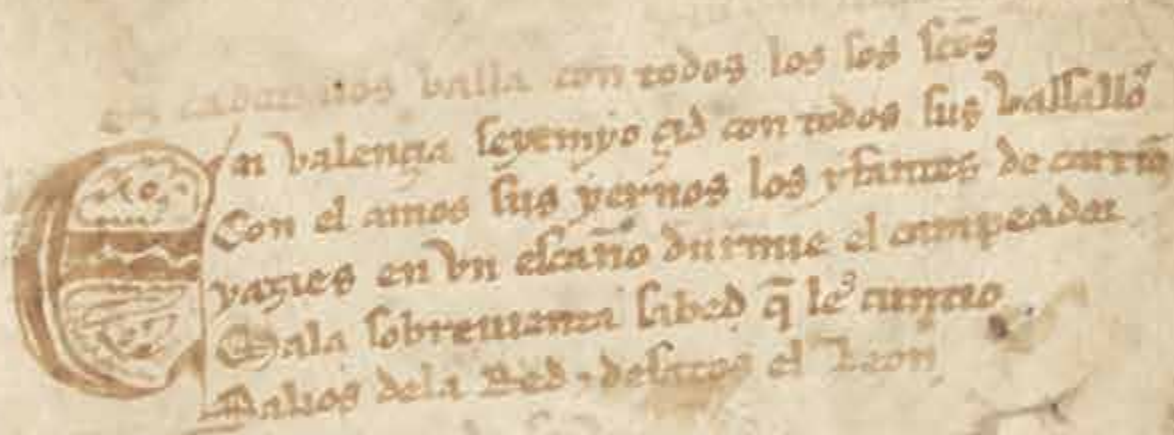 El criador uos valla con todos los sos scos
En valençia seye myo çid con todos sus vassallos
Con el amos sus yernos los yfantes de carrion
yazies en vn escaño durmie el campeador
Mala sobreuienta sabed q̃ les cuntio
Salios dela Red ⁊ desatos el Leon